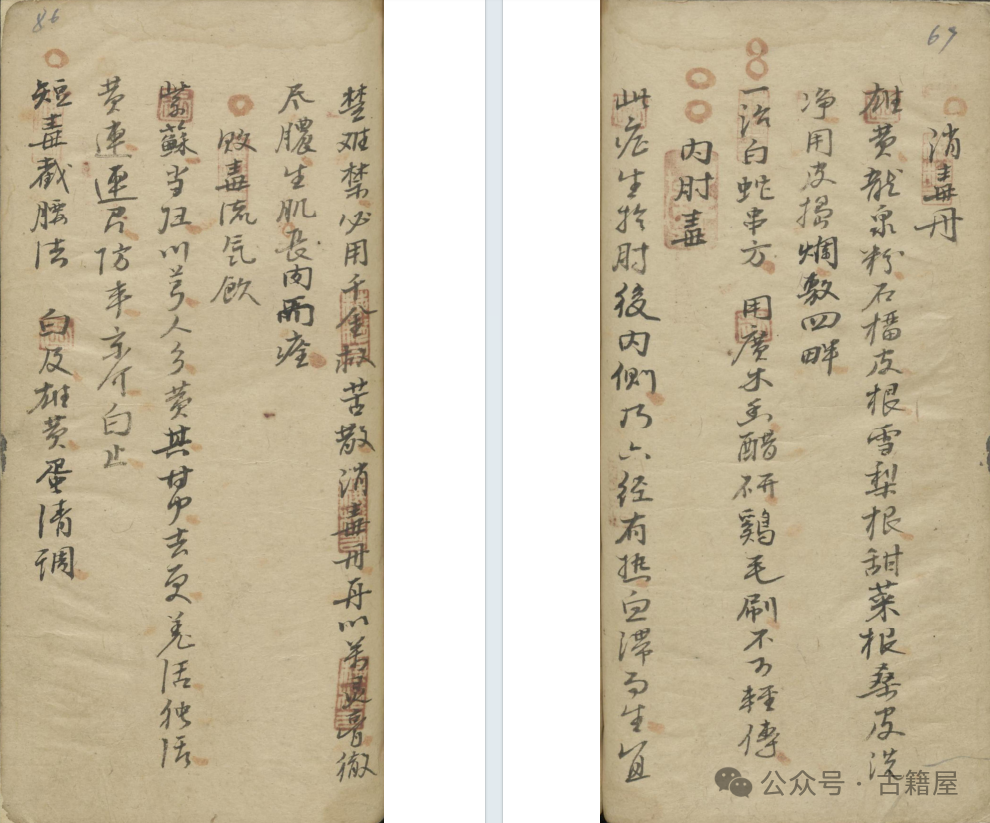 69
消毒丹
雄黄龍泉粉石榴皮根雪梨根甜菜根桑皮洗
净用皮搗爛敷四畔
一治白蛇串方 用廣木香醋研鷄毛刷不可輕傳
内肘毒
此症生於肘後内側乃六经有热血滞而生宜
86
楚难禁必用千金救苦散消毒丹再以萬灵膏徹
尽膿生肌長肉而痊
败毒流气飲
紫蘇当归川芎人参黄芪甘草去更羌活独活
黄連連召防丰京介白止
短毒截腰法 白及雄黄蛋清调
公众号·古籍屋